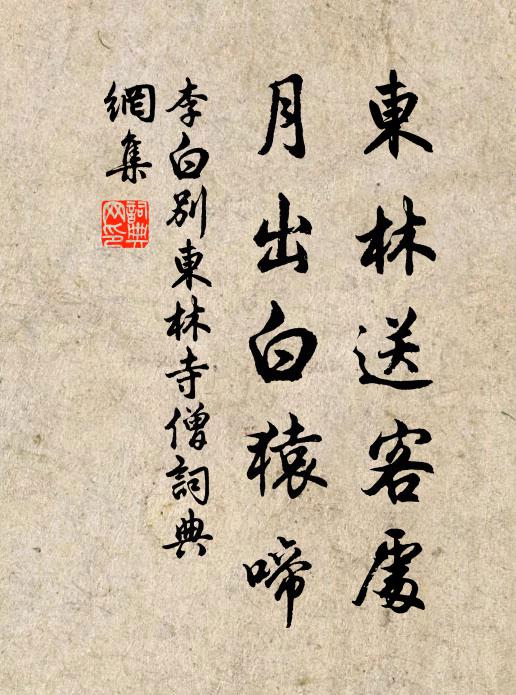 東林送客處
月出白猿啼
李白別東林寺僧詞典
網集
詞典網印